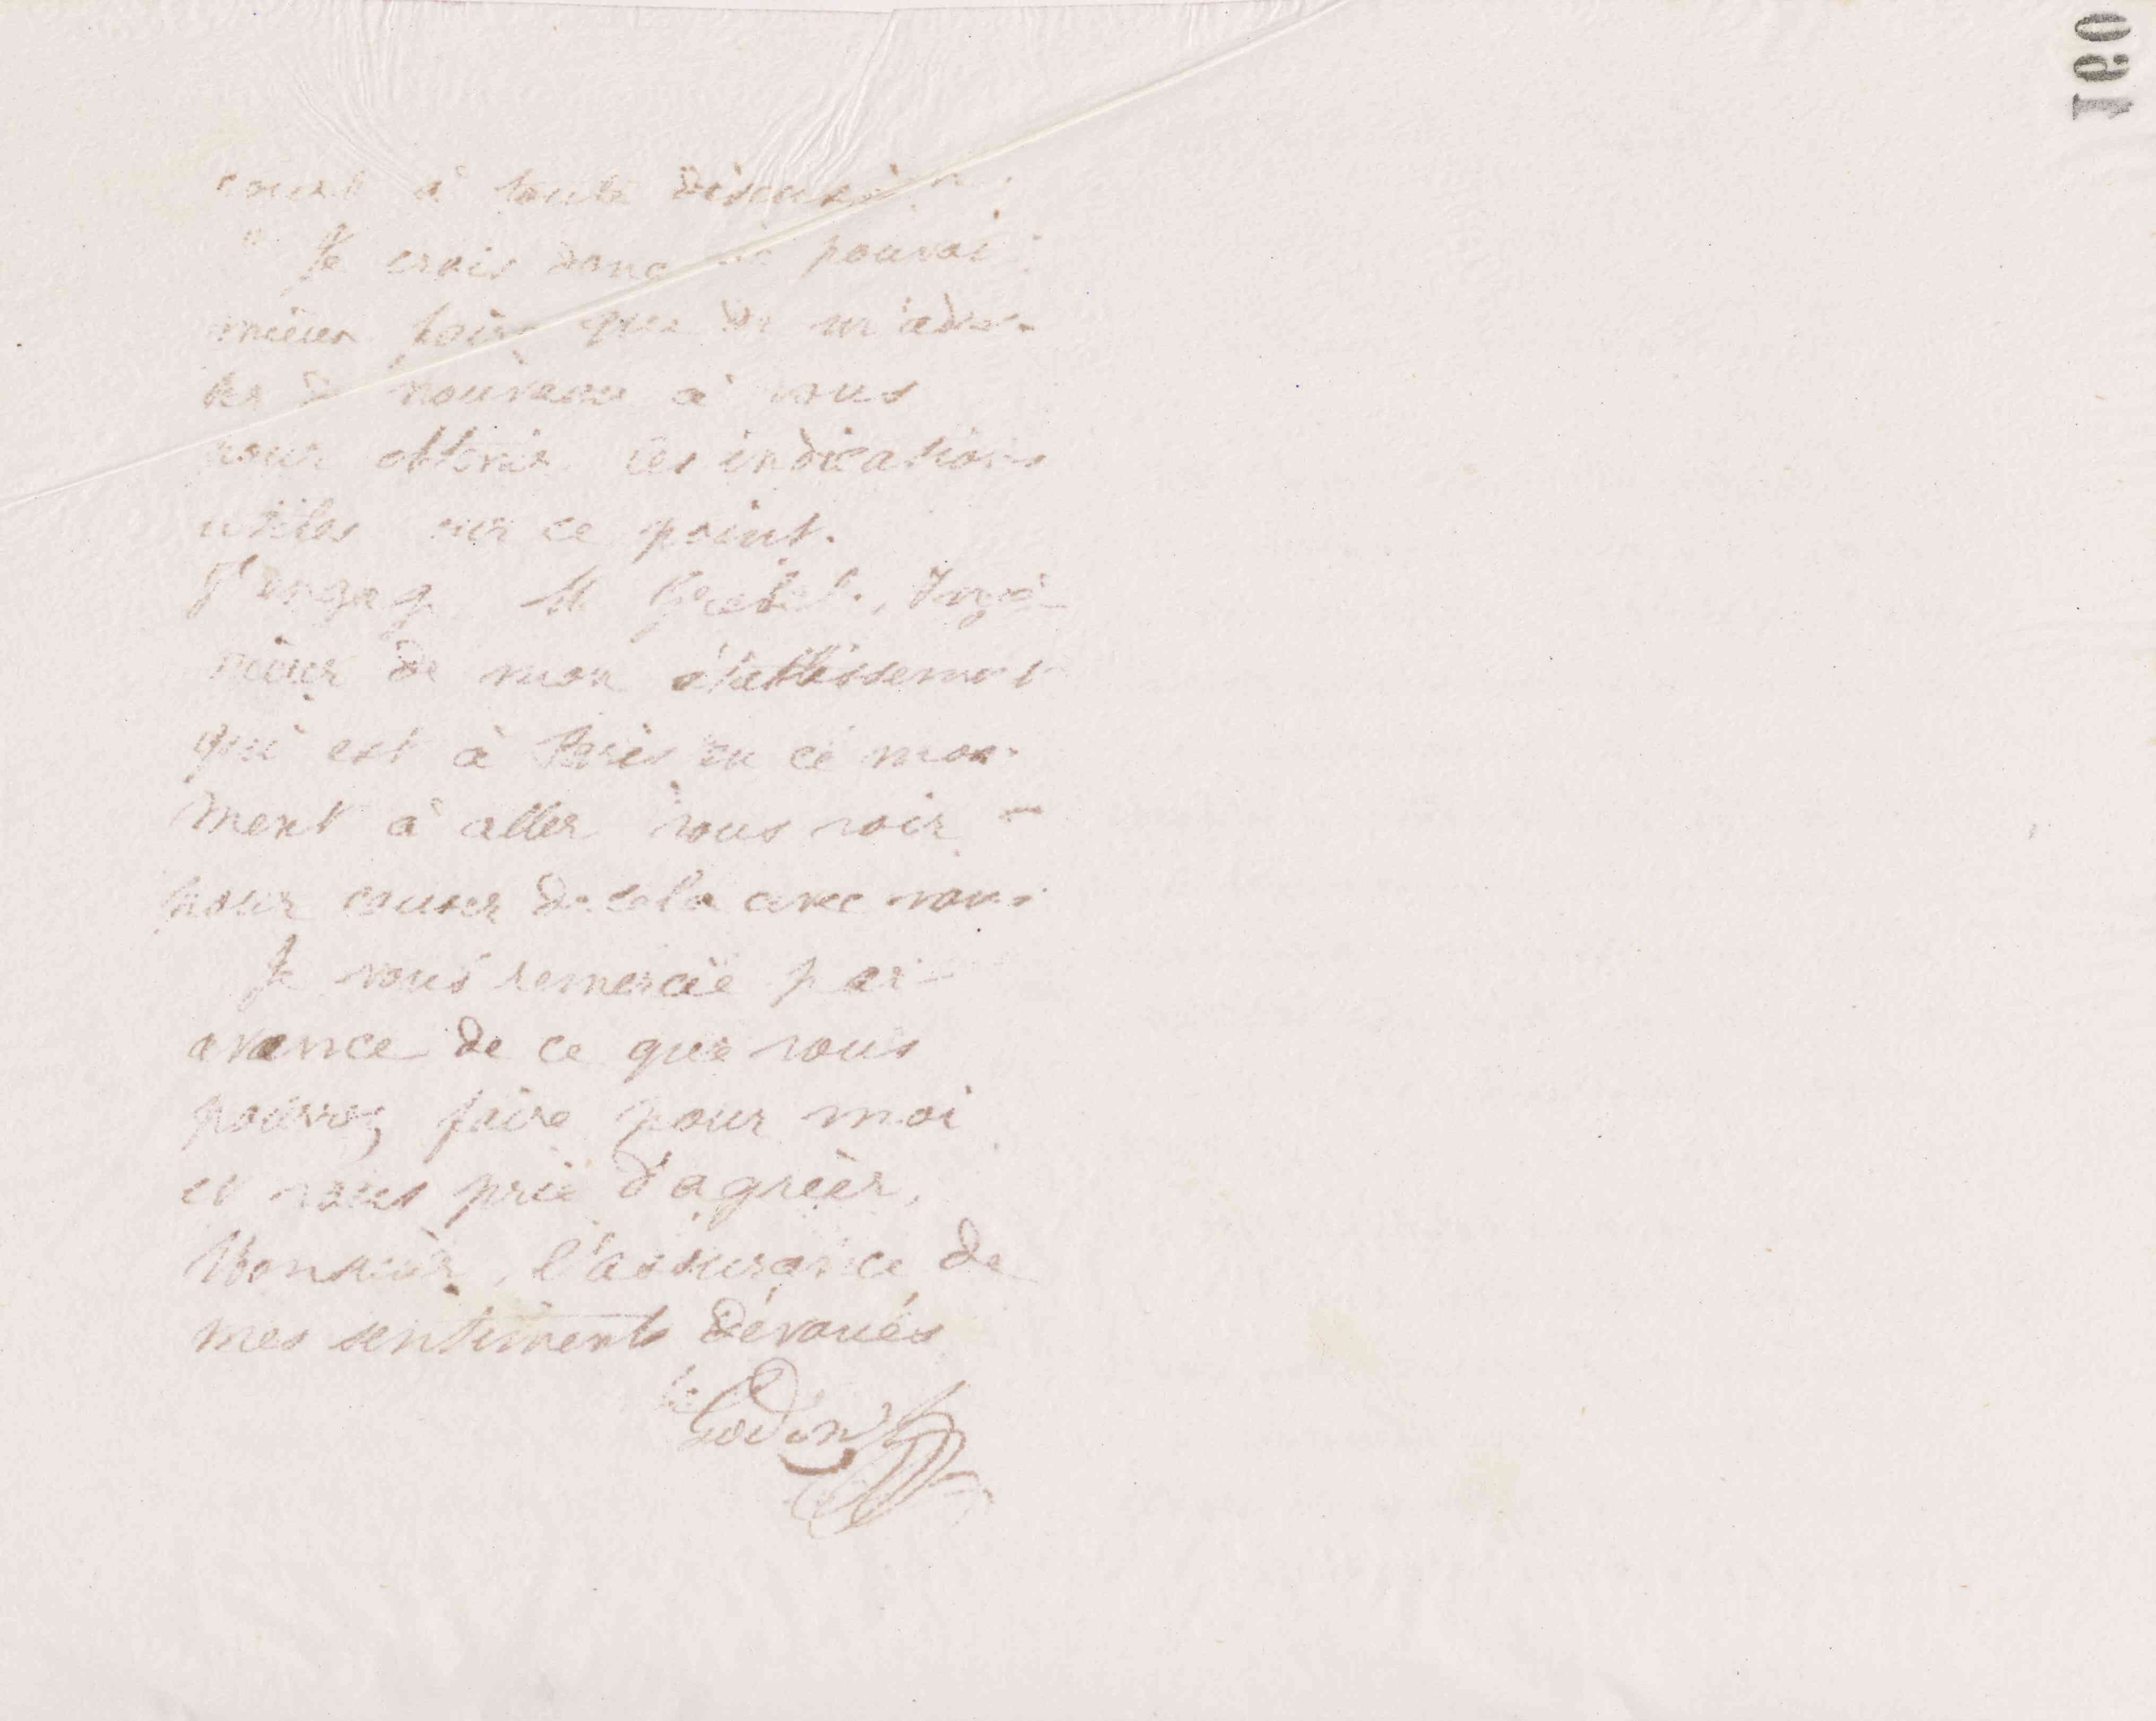 160
court à toute discussion.
Je crois donc ne pouvoir
mieux faire que de m'adres-
ser de nouveau à vous
pour obtenir les indications
utiles sur ce point.
J'engage M Ingé-
nieur de mon établissement
qui est à Paris en ce mo-
ment à aller vous voir
pour causer de cela avec vous
Je vous remercie par
avance de ce que vous
pouvez faire pour moi
et vous prie d'agréer,
Monsieur, l'assurance de
mes sentiments dévoués
Godin